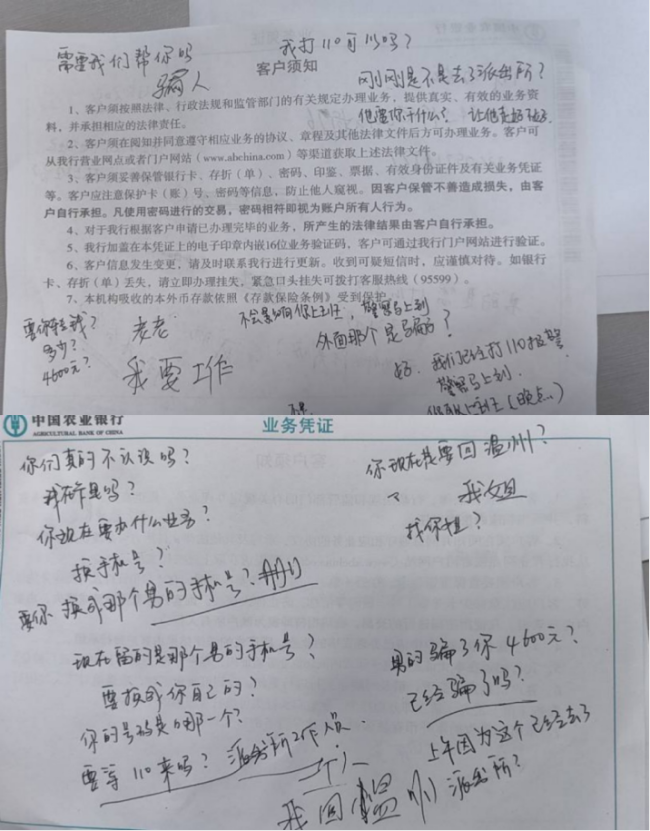 需要我们帮你吗
我打110可以吗?
骗人
客户须知
刚刚是不是去了派出所?
1、客户须按照法律、行政法规和监管部门的有关规定办理业务,提供真实、有效的业务资
他要你干什么?
料,并承担相应的法律责任。
2、客户须在阅知并同意遵守相应业务的协议、章程及其他法律文件后方可办理业务。客户可
从我行营业网点或者门户网站(www.abchina.com)等渠道获取上述法律文件。
3、客户须妥善保管银行卡、存折(单)、密码、印鉴、票据、有效身份证件及有关业务凭证
等。客户应注意保护卡(账)号、密码等信息,防止他人窥视。因客户保管不善造成损失,由客
户自行承担。凡使用密码进行的交易,密码相符即视为账户所有人行为。
4、对于我行根据客户申请已办理完毕的业务,所产生的法律结果由客户自行承担。
5、我行加盖在本凭证上的电子印章内嵌16位业务验证码,客户可通过我行门户网站进行验证。
6、客户信息发生变更,请及时联系我行进行更新。收到可疑短信时,应谨慎对待。如银行
卡、存折(单)丢失,请立即办理挂失,紧急口头挂失可拨打客服热线(95599)。
7、本机构吸收的本外币存款依照《存款保险条例》受到保护。
不会影响你上班,警察马上到
要你转钱?
多少?
4600元?
老老
外面那个是骗的?
我要工作
好,我们已经打110报警
警察马上到.
(晚点..)
中国农业银行
AGRICULTURAL BANK OF CHINA
业务凭证
你们真的不认识吗?
你现在是要回温州?
我姐
你现在要办什么业务?
找你姐?
换手机号?
要你换成那个男的手机号?
现在留的是那个男的手机号?
男的骗了你4600元?
要换成你自己的?
已经骗了吗?
你的号码是哪一个?
上午因为这个已经去了
派出所?
要等110来吗?派出所工作人员.
一个人
我回温州